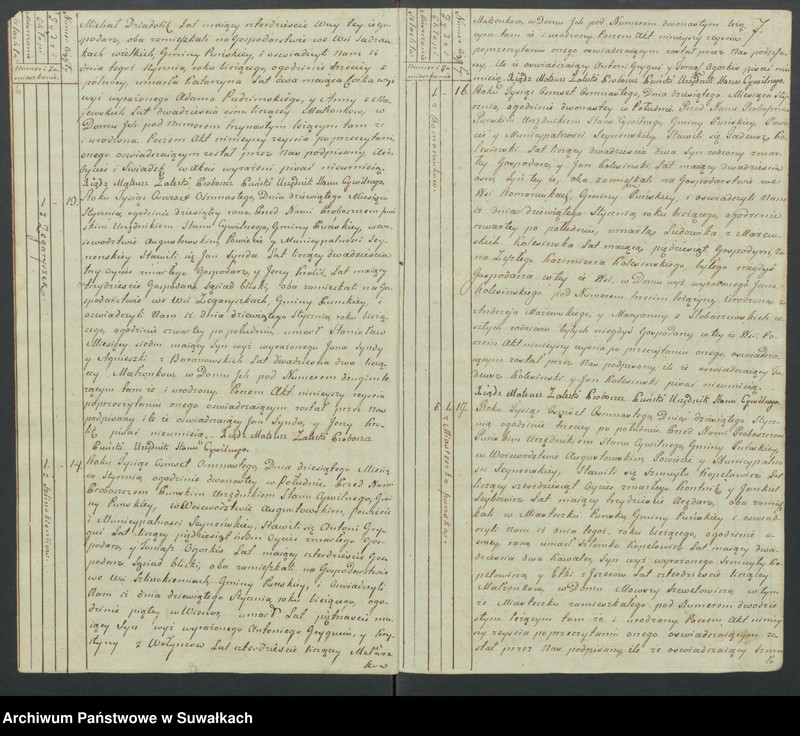 Michał Dziadulic Lat maiący czterdzieście
podarz, oba zamięszkali na Gospodarstwie we Wsi
kach wielkich, Gminy Puńskiey, i oświadczyli Nam iż
dnia tegoż Stycznia, roku bieżącego, ogodzinie trzeciey z
północy, umarła Katarzyna Lat dwa maiąca Córka wyż
wyż wyrażonego Adama Pudzimskiego, y Anny z
Lat dwadzieścia ośm liczącey Małżonków, w
Domu Jch pod Numerem trzynastym leżącym tam że
i urodzona. Poczem Akt ninieyszy zeyscia po przeczytaniu
onego oświadczaiącym został przez Nas podpisany, iże
Oyciec i Świadek w Akcie wyrażeni pisać nieumieią.
Xiądz Mateusz Zaleski Proboszcz Puński Urzędnik Stanu Cywilnego.
1 13. Roku Tysiąc Ośmset Osmnastego, Dnia dziewiątego Miesiąca
z Zegaryszek.
Stycznia, ogodzinie dziesiątey rana Przed Nami Proboszczem Puń
skim Urzędnikiem Stanu Cywilnego, Gminy Puńskiey, w Wo
iewództwie Augustowskim, Powiecie y Municypalności Sey
neńskiey Stawili się Jan Synda Lat liczący dwadzieścia
trzy Oyciec zmarłego Gospodarz, y Jerzy Krolić, Lat maiący
trzydzieście Gospodarz Sąsiad bliski, oba zamieszkali na Go
spodarstwie we Wsi Zegaryszkach, Gminy Puńskiey, i
oświadczyli Nam iż dnia dziewiątego Stycznia, roku bieżą
cego, ogodzinie czwartey po południu, umarł Stanisław
Miesięcy siedm maiący Syn wyż wyrażonego Jana Syndy
y Agnieszki z Baranowskich Lat dwadzieścia dwa liczą
cey Małżonków, w Domu Jch pod Numerem drugim le
żącym tam że i urodzony. Poczem Akt ninieyszy zeyscia
po przeczytaniu onego oświadczaiącym został przez Nas
podpisany ile że oświadczaiący Jan Synda, y Jerzy Kro
lić pisać nieumieią. Xiądz Mateusz Zaleski Proboszcz
Puński Urzędnik Stanu Cywilnego.
1 14. Roku Tysiąc Ośmset Osmnastego, Dnia dziesiątego Miesią
z Szlinokiemiow.
ca Stycznia, ogodzinie dwunastey w Południe. Przed Nami
Proboszczem Puńskim Urzędnikiem Stanu Cywilnego, Gmi
ny Puńskiey, w Woiewództwie Augustowskim, Powiecie
i Municypalności Seyneńskiey, Stawili się Antoni Gry
guć Lat liczący pięćdziesiąt siedm Oyciec zmarłego Gos
podarz, y Tomasz Ogorkis Lat maiący czterdzieście Gos
podarz Sąsiad bliski, oba zamięszkali na Gospodarstwie
we Wsi Szlinokiemiach, Gminy Puńskiey, i oświadczyli
Nam iż dnia dziewiątego Stycznia, roku bieżącego, ogo
dzinie piątey w Wieczor, umarł Lat piętnaście ma
iący Syn wyż wyrażonego Antoniego Grygucia, y Kry
styny z Wołyncow Lat czterdzieście liczącey Małżon
kow
7.
Małżonkow, w Domu Jch pod Numerem dwunastym leżą
cym tam że i urodzony. Poczem Akt ninieyszy zeyscia
po przeczytaniu onego oświadczaiącym został przez Nas podpisa
ny, ile że oświadczaiący Antoni Gryguć y Tomasz Ogorkis pisać nieu
mieią. Xiądz Mateusz Zaleski Proboszcz Puński Urzędnik Stanu Cywilnego.
1 16. Roku Tysiąc Ośmset Osmnastego, Dnia dziesiątego Miesiąca Sty
z Romanowkow.
cznia, ogodzinie dwunastey w Południe. Przed Nami Proboszczem
Puńskim Urzędnikiem Stanu Cywilnego, Gminy Puńskiey, Powie
cie y Municypalności Seyneńskiey, Stawili się Tadeusz Ko
lesiński Lat liczący dwadzieścia dwa Syn rodzony zmar
łey Gospodarz, y Jan Kolesinski Lat maiący dwadzieścia
ośm Syn teyże, oba zamięszkali na Gospodarstwie we
Wsi Romanowkach, Gminy Puńskiey, i oświadczyli Nam
iż dnia dziewiątego Stycznia, roku bieżącego, ogodzinie
czwartey po południu, umarła Ludowika z Mazew
skich Kolesinska Lat maiąca pięćdziesiąt Gospodyni, Żo
na Zeszłego Kazimierza Kolesinskiego, byłego niegdyś
Gospodarza w tey że Wsi, w Domu wyż wyrażonego Jana
Kolesinskiego pod Numerem trzecim leżącym, Urodzona z
Andrzeia Mazewskiego, y Maryanny z Słobaczewskich ze
szłych rodziców byłych niegdyś Gospodarzy w tey że Wsi. Po
czem Akt ninieyszy zeyscia po przeczytaniu onego, oświadcza
iącym został przez Nas podpisany, ile że oświadczaiący Ta
deusz Kolesinski y Jan Kolesinski pisać nieumieią.
Xiądz Mateusz Zaleski Proboszcz Puński Urzędnik Stanu Cywilnego.
1 17. Roku Tysiąc Ośmset Osmnastego, Dnia dziesiątego Stycz
z Miasteczka Puńska.
nia ogodzinie trzeciey po południu. Przed Nami Proboszczem
Puńskim Urzędnikiem Stanu Cywilnego, Gminy Puńskiey,
w Woiewództwie Augustowskim, Powiecie y Municypalno
ści Seyneńskiey, Stawili się Szmuyło Kopelowicz Lat
liczący sześćdziesiąt Oyciec zmarłego y Jankiel
Leybowicz Lat maiący trzydzieście Arędarz, oba zamięsz
kali w Miasteczku Puńsku, Gminy Puńskiey i oświad
czyli Nam iż dnia tegoż, roku bieżącego, ogodzinie ó
smey, rana umarł Szlomka Kopelowicz Lat maiący dwa
dzieścia dwa Kawaler, Syn wyż wyrażonego Szmuyły Ko
pelowicza, y Etki z Jozesow Lat czterdzieście liczącey
Małżonków, w Domu Mowszy Szmelowicza, w tym
że Miasteczku zamięszkałego, pod Numerem dwudzie
stym leżącym tam że i urodzony. Poczem Akt ninieyszy
zeyscia po przeczytaniu onego oświadczaiącym zo
stał przez Nas podpisany ile że oświadczaiący Szmu
ło
Archiwum Państwowe w Suwałkach